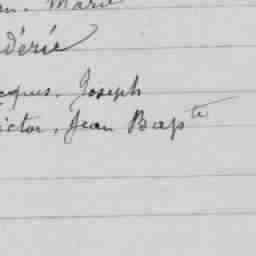 n. Marie
déric
cques. Joseph
ictor, Jean Bapte